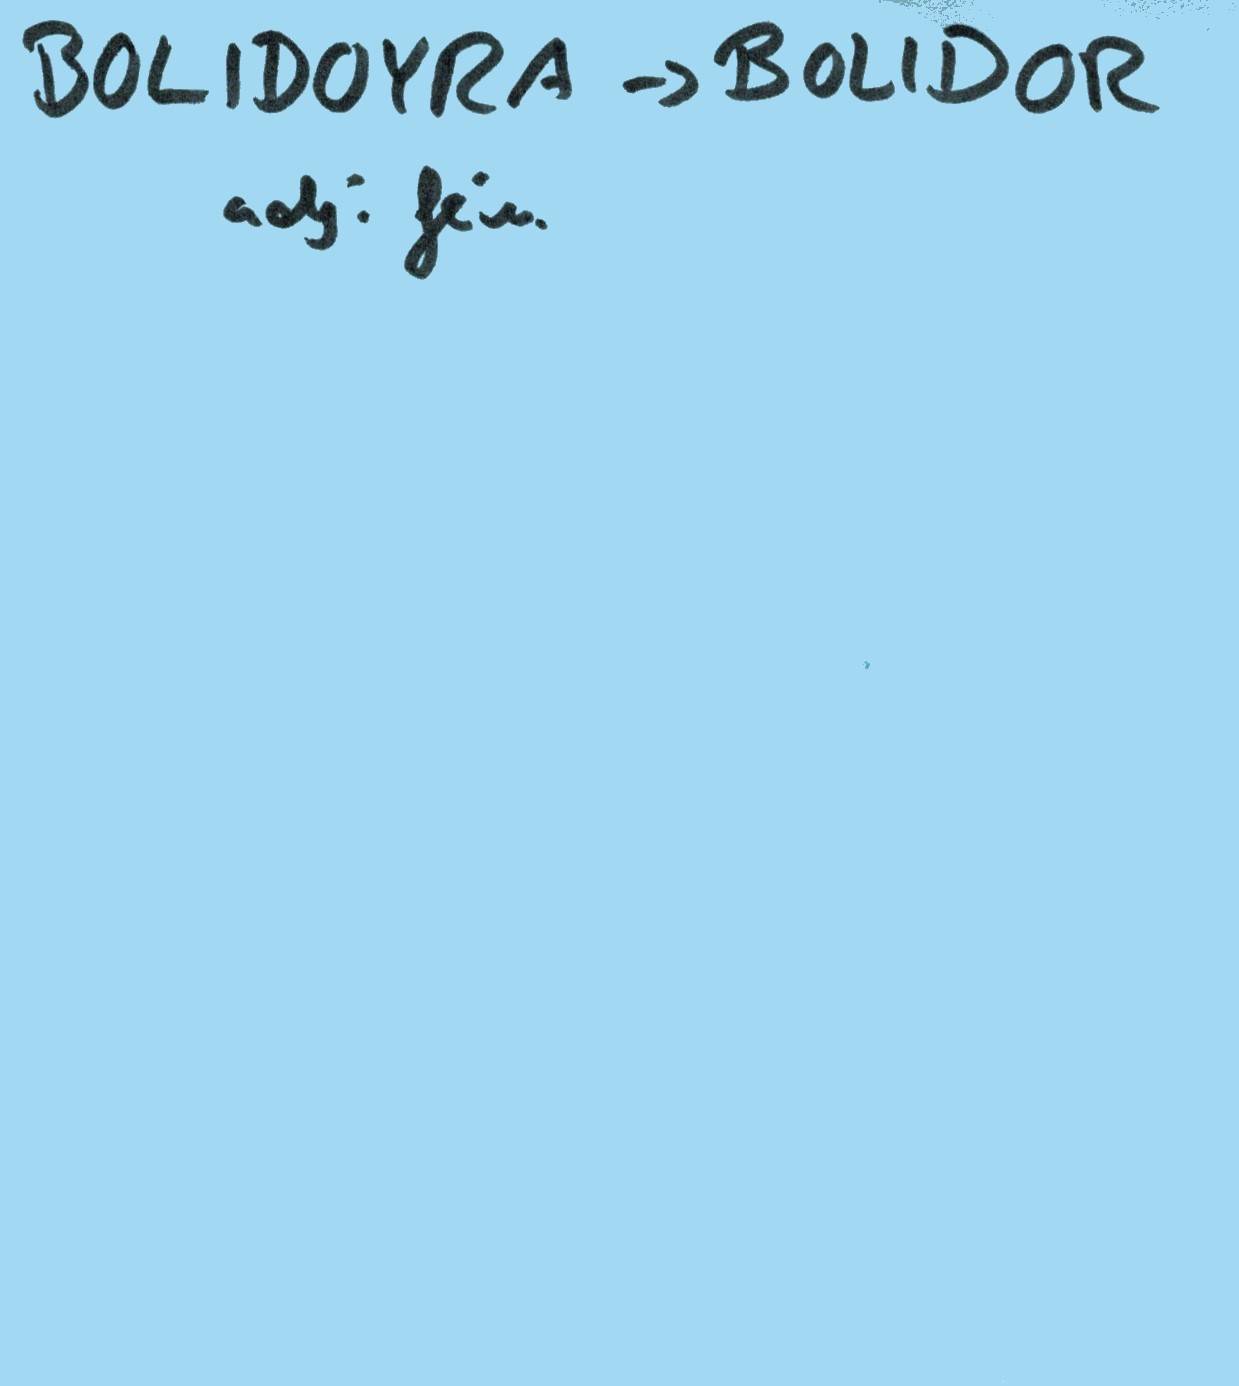 BOLIDOYRA -> BOLIDOR
adj. fém.